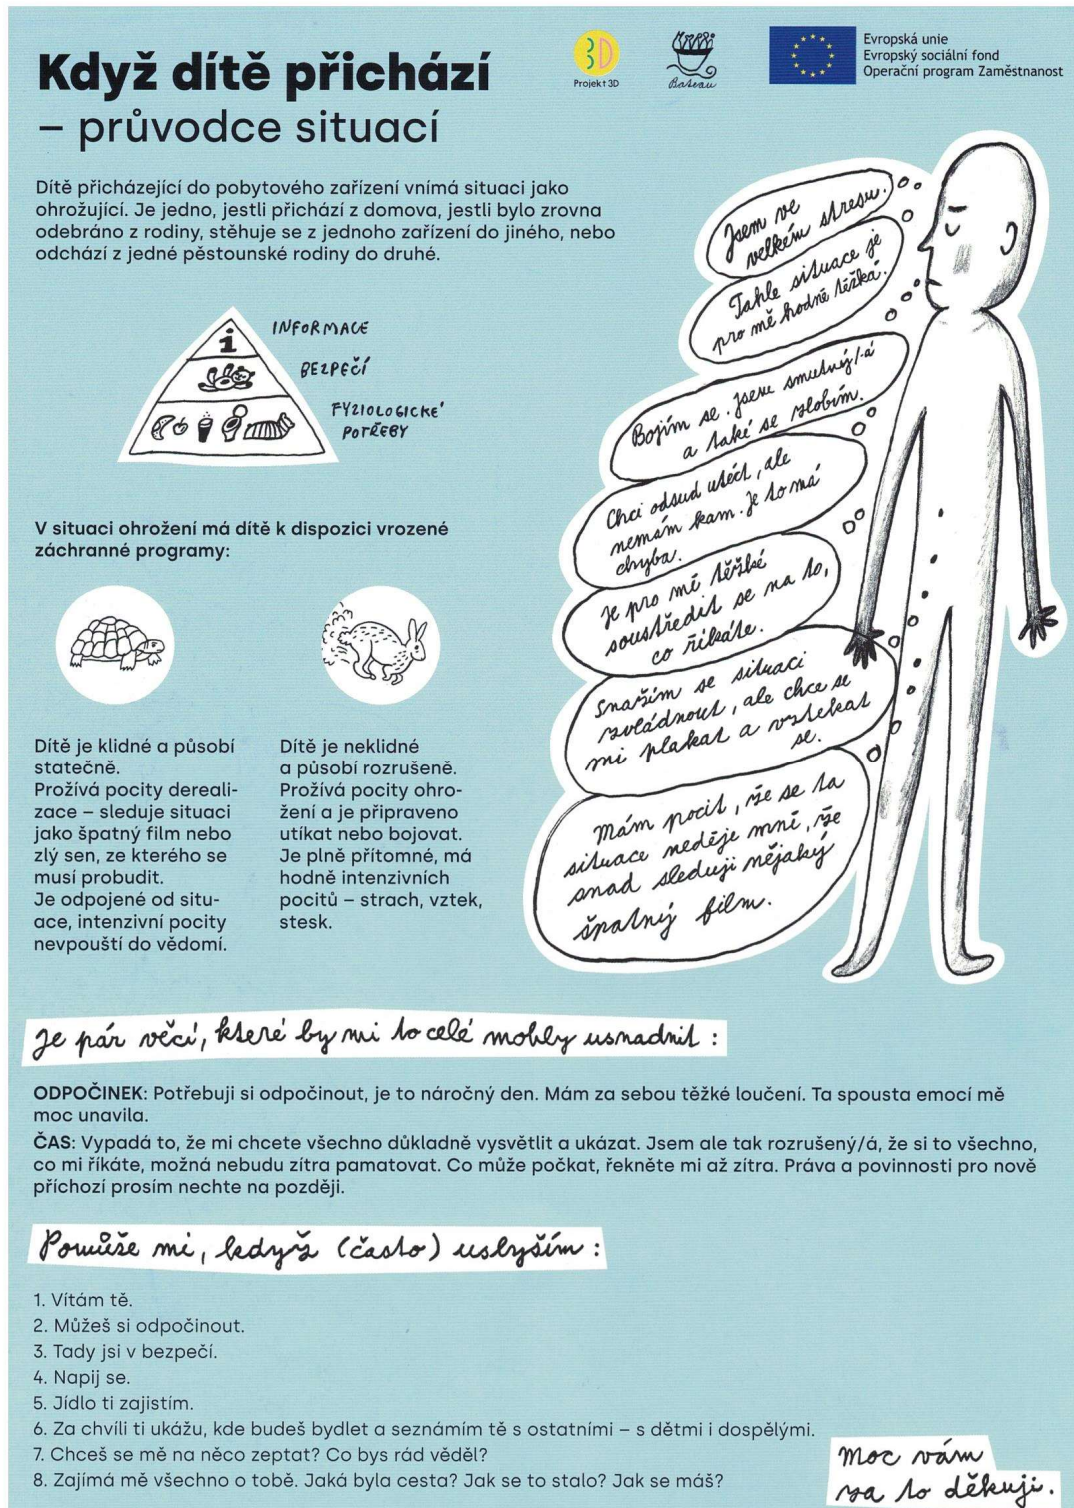 Když dítě přichází
– průvodce situací
Projekt 3D
Bateau
Evropská unie
Evropský sociální fond
Operační program Zaměstnanost
Dítě přicházející do pobytového zařízení vnímá situaci jako
ohrožující. Je jedno, jestli přichází z domova, jestli bylo zrovna
odebráno z rodiny, stěhuje se z jednoho zařízení do jiného, nebo
odchází z jedné pěstounské rodiny do druhé.
i
INFORMACE
BEZPEČÍ
FYZIOLOGICKÉ
POTŘEBY
V situaci ohrožení má dítě k dispozici vrozené
záchranné programy:
Dítě je klidné a působí
statečně.
Prožívá pocity dereali-
zace – sleduje situaci
jako špatný film nebo
zlý sen, ze kterého se
musí probudit.
Je odpojené od situ-
ace, intenzivní pocity
nevpouští do vědomí.
Dítě je neklidné
a působí rozrušeně.
Prožívá pocity ohro-
žení a je připraveno
utíkat nebo bojovat.
Je plně přítomné, má
hodně intenzivních
pocitů – strach, vztek,
stesk.
Jsem ve
velkém stresu.
Tahle situace je
pro mě hodně těžká.
Bojím se. Jsem smutný/-á
a také se zlobím.
Chci odsud utéct, ale
nemám kam. Je to má
chyba.
Je pro mě těžké
soustředit se na to,
co říkáte.
Snažím se situaci
zvládnout, ale chce se
mi plakat a vztekat
se.
Mám pocit, že se ta
situace neděje mně, že
snad sleduji nějaký
špatný film.
Je pár věcí, které by mi to celé mohly usnadnit:
ODPOČINEK: Potřebuji si odpočinout, je to náročný den. Mám za sebou těžké loučení. Ta spousta emocí mě
moc unavila.
ČAS: Vypadá to, že mi chcete všechno důkladně vysvětlit a ukázat. Jsem ale tak rozrušený/á, že si to všechno,
co mi říkáte, možná nebudu zítra pamatovat. Co může počkat, řekněte mi až zítra. Práva a povinnosti pro nově
příchozí prosím nechte na později.
Pomůže mi, když (často) uslyším:
1. Vítám tě.
2. Můžeš si odpočinout.
3. Tady jsi v bezpečí.
4. Napij se.
5. Jídlo ti zajistím.
6. Za chvíli ti ukážu, kde budeš bydlet a seznámím tě s ostatními – s dětmi i dospělými.
7. Chceš se mě na něco zeptat? Co bys rád věděl?
8. Zajímá mě všechno o tobě. Jaká byla cesta? Jak se to stalo? Jak se máš?
Moc vám
za to děkuji.